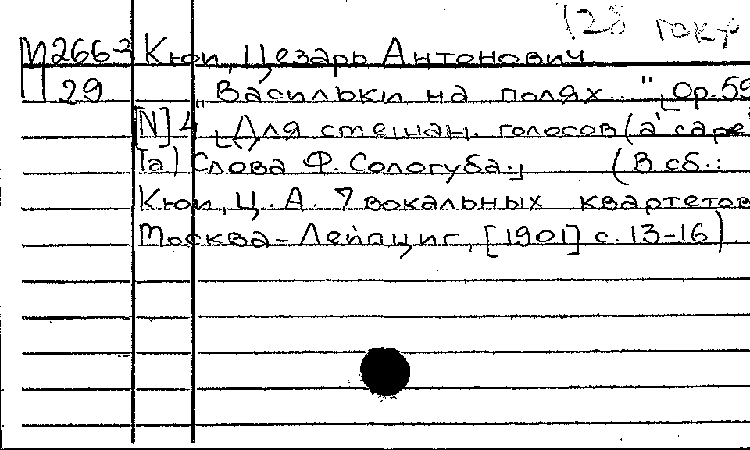 М266-2 Кюи, Цезарь Антонович
Ц29 "Васильки на полях..", Ор.59
[N] 4, (Для смешан. голосов (a cape
la) Слова Ф. Сологуба., (В сб.:
Кюи, Ц. А. 7 вокальных квартетов
Москва-Лейпциг, [1901] с. 13-16)